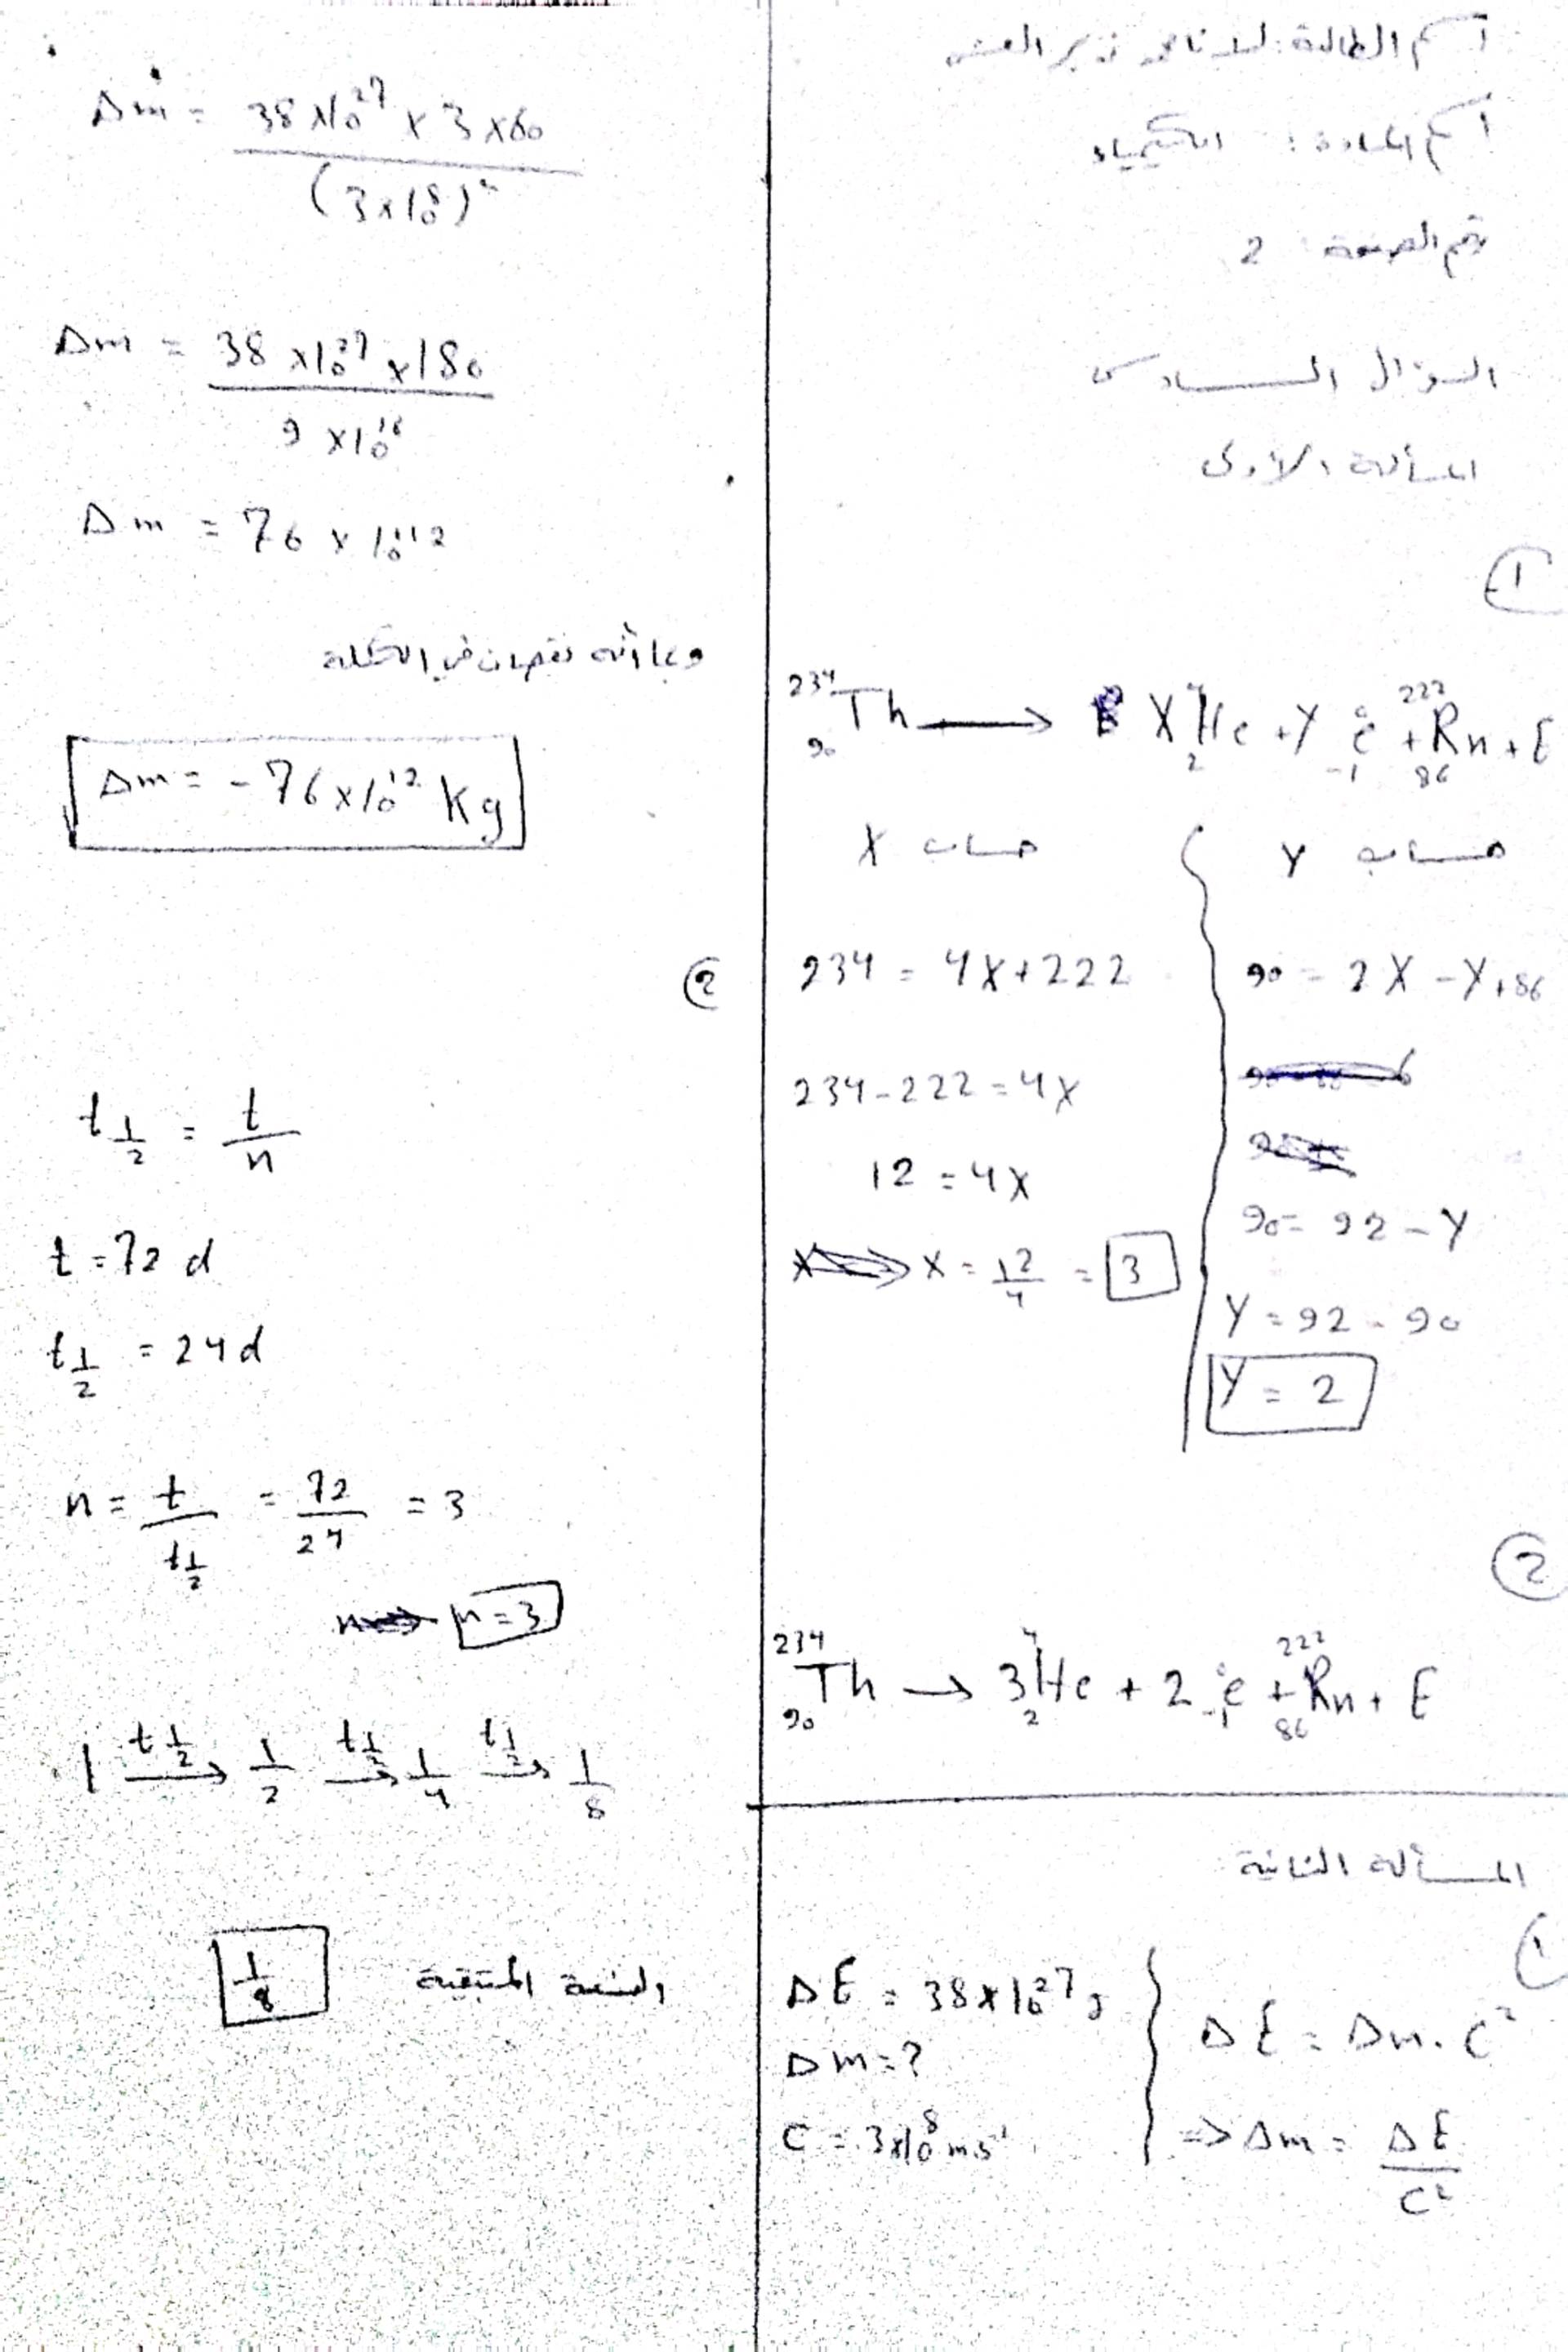 اسم الطالبة:
اسم المادة: الكيمياء
رقم الصفحة: 2
السؤال السادس
المسألة الأولى
1
²³⁴₉₀Th → X ⁴₂He + Y ⁰₋₁e + ²²²₈₆Rn + E
حساب X
234 = 4X + 222
234 - 222 = 4X
12 = 4X
X = 12/4 = 3
حساب Y
90 = 2X - Y + 86
90 = 92 - Y
Y = 92 - 90
Y = 2
2
²³⁴₉₀Th → 3 ⁴₂He + 2 ⁰₋₁e + ²²²₈₆Rn + E
المسألة الثانية
1
ΔE = 38 × 10²⁷ J
Δm = ?
C = 3×10⁸ m s⁻¹
ΔE = Δm . C²
=> Δm = ΔE/C²
Δm = 38×10²⁷ × 3 × 60 / (3×10⁸)²
Δm = 38×10²⁷ × 180 / 9×10¹⁶
Δm = 76 × 10¹²
وبما أنه نقصان في الكتلة
Δm = -76×10¹² Kg
2
t½ = t/n
t = 72 d
t½ = 24 d
n = t/t½ = 72/24 = 3
n = 3
1 →(t½) 1/2 →(t½) 1/4 →(t½) 1/8
والنسبة المتبقية 1/8